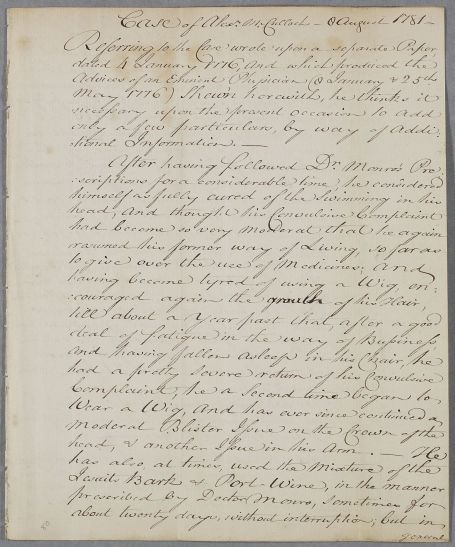 Case of Alexr. McCulloch – 8 August 1781 –
Referring to the Case wrote upon a separate Paper
dated 4 January 1776 And which produced the
Advices of an Eminent Physician (8 January & 25th
May 1776) Shown herewith, he thinks it
necessary upon the present Occasion to add
only a few particulars, by way of Addi-
tional Information. —
After having followed Dr Monro's Pre
:scriptions for a considerable time, he considered
himself as fully cured of the Swimming in his
head, And thought his Convulsive Complaint
had become so very Moderat that he again
resumed his former way of Living, so far as
to give over the use of Medicines; And
having become tyred of using a Wig, en:
:couraged again the growth of his Hair,
till about a Year past that, after a good
deal of fatigue in the way of Business,
And having fallen Asleep in his Chair, he
had a pretty severe return of his Convulsive
Complaint, he a Second time began to
Wear a Wig, And has ever since continued a
Moderat Blister Issue on the Crown of the
head, & another Issue in his Arm. — He
has also, at times, used the Mixture of the
Jesuits Bark & Port-Wine, in the manner
prescribed by Doctor Monro, sometimes for
about twenty days, without interruption; but in
General